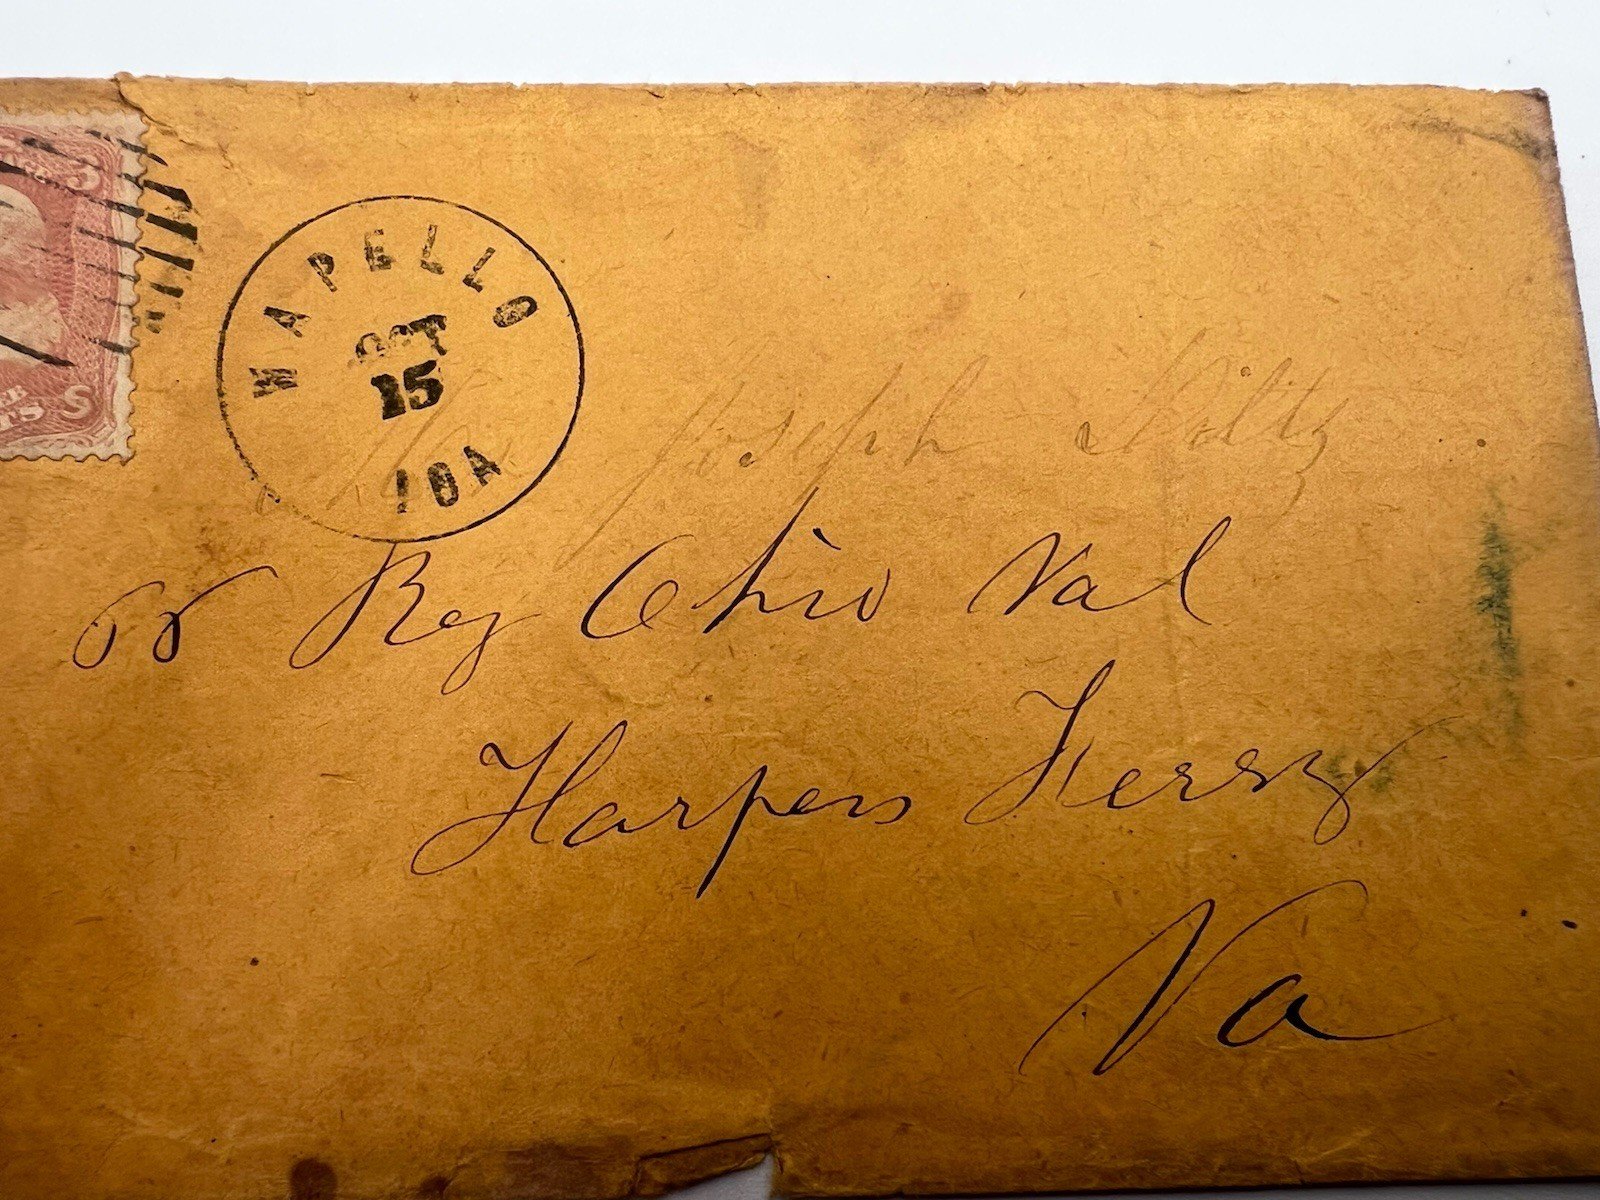 WAPELLO
OCT
15
IOA
Joseph
66 Reg Ohio Val
Harpers Ferry
Va